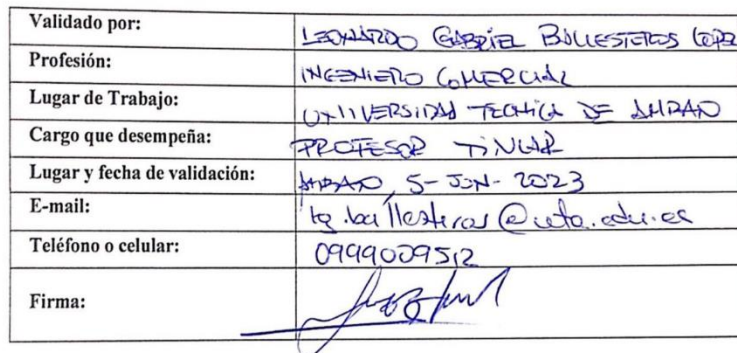 Validado por: LEONARDO GABRIEL BALLESTEROS LOPEZ
Profesión: INGENIERO COMERCIAL
Lugar de Trabajo: UNIVERSIDAD TECNICA DE AMBATO
Cargo que desempeña: PROFESOR TITULAR
Lugar y fecha de validación: AMBATO, 5-JUN-2023
E-mail: lg.ballesteros@uta.edu.ec
Teléfono o celular: 0999009512
Firma: